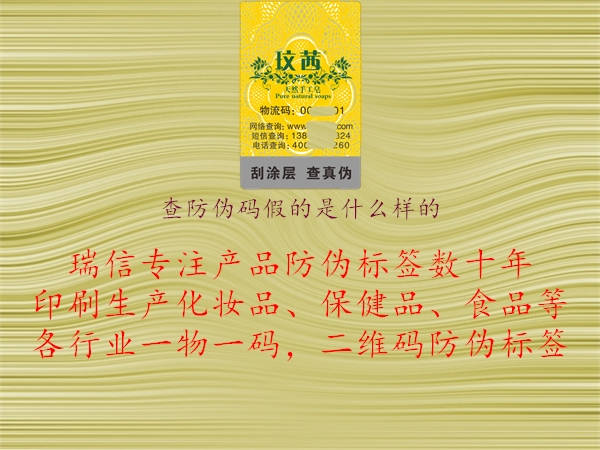 玟茜
天然手工皂
Pure natural soaps
物流码：00 01
网络查询：www. .com
短信查询：138 824
电话查询：400 260
刮涂层 查真伪
查防伪码假的是什么样的
瑞信专注产品防伪标签数十年
印刷生产化妆品、保健品、食品等
各行业一物一码，二维码防伪标签